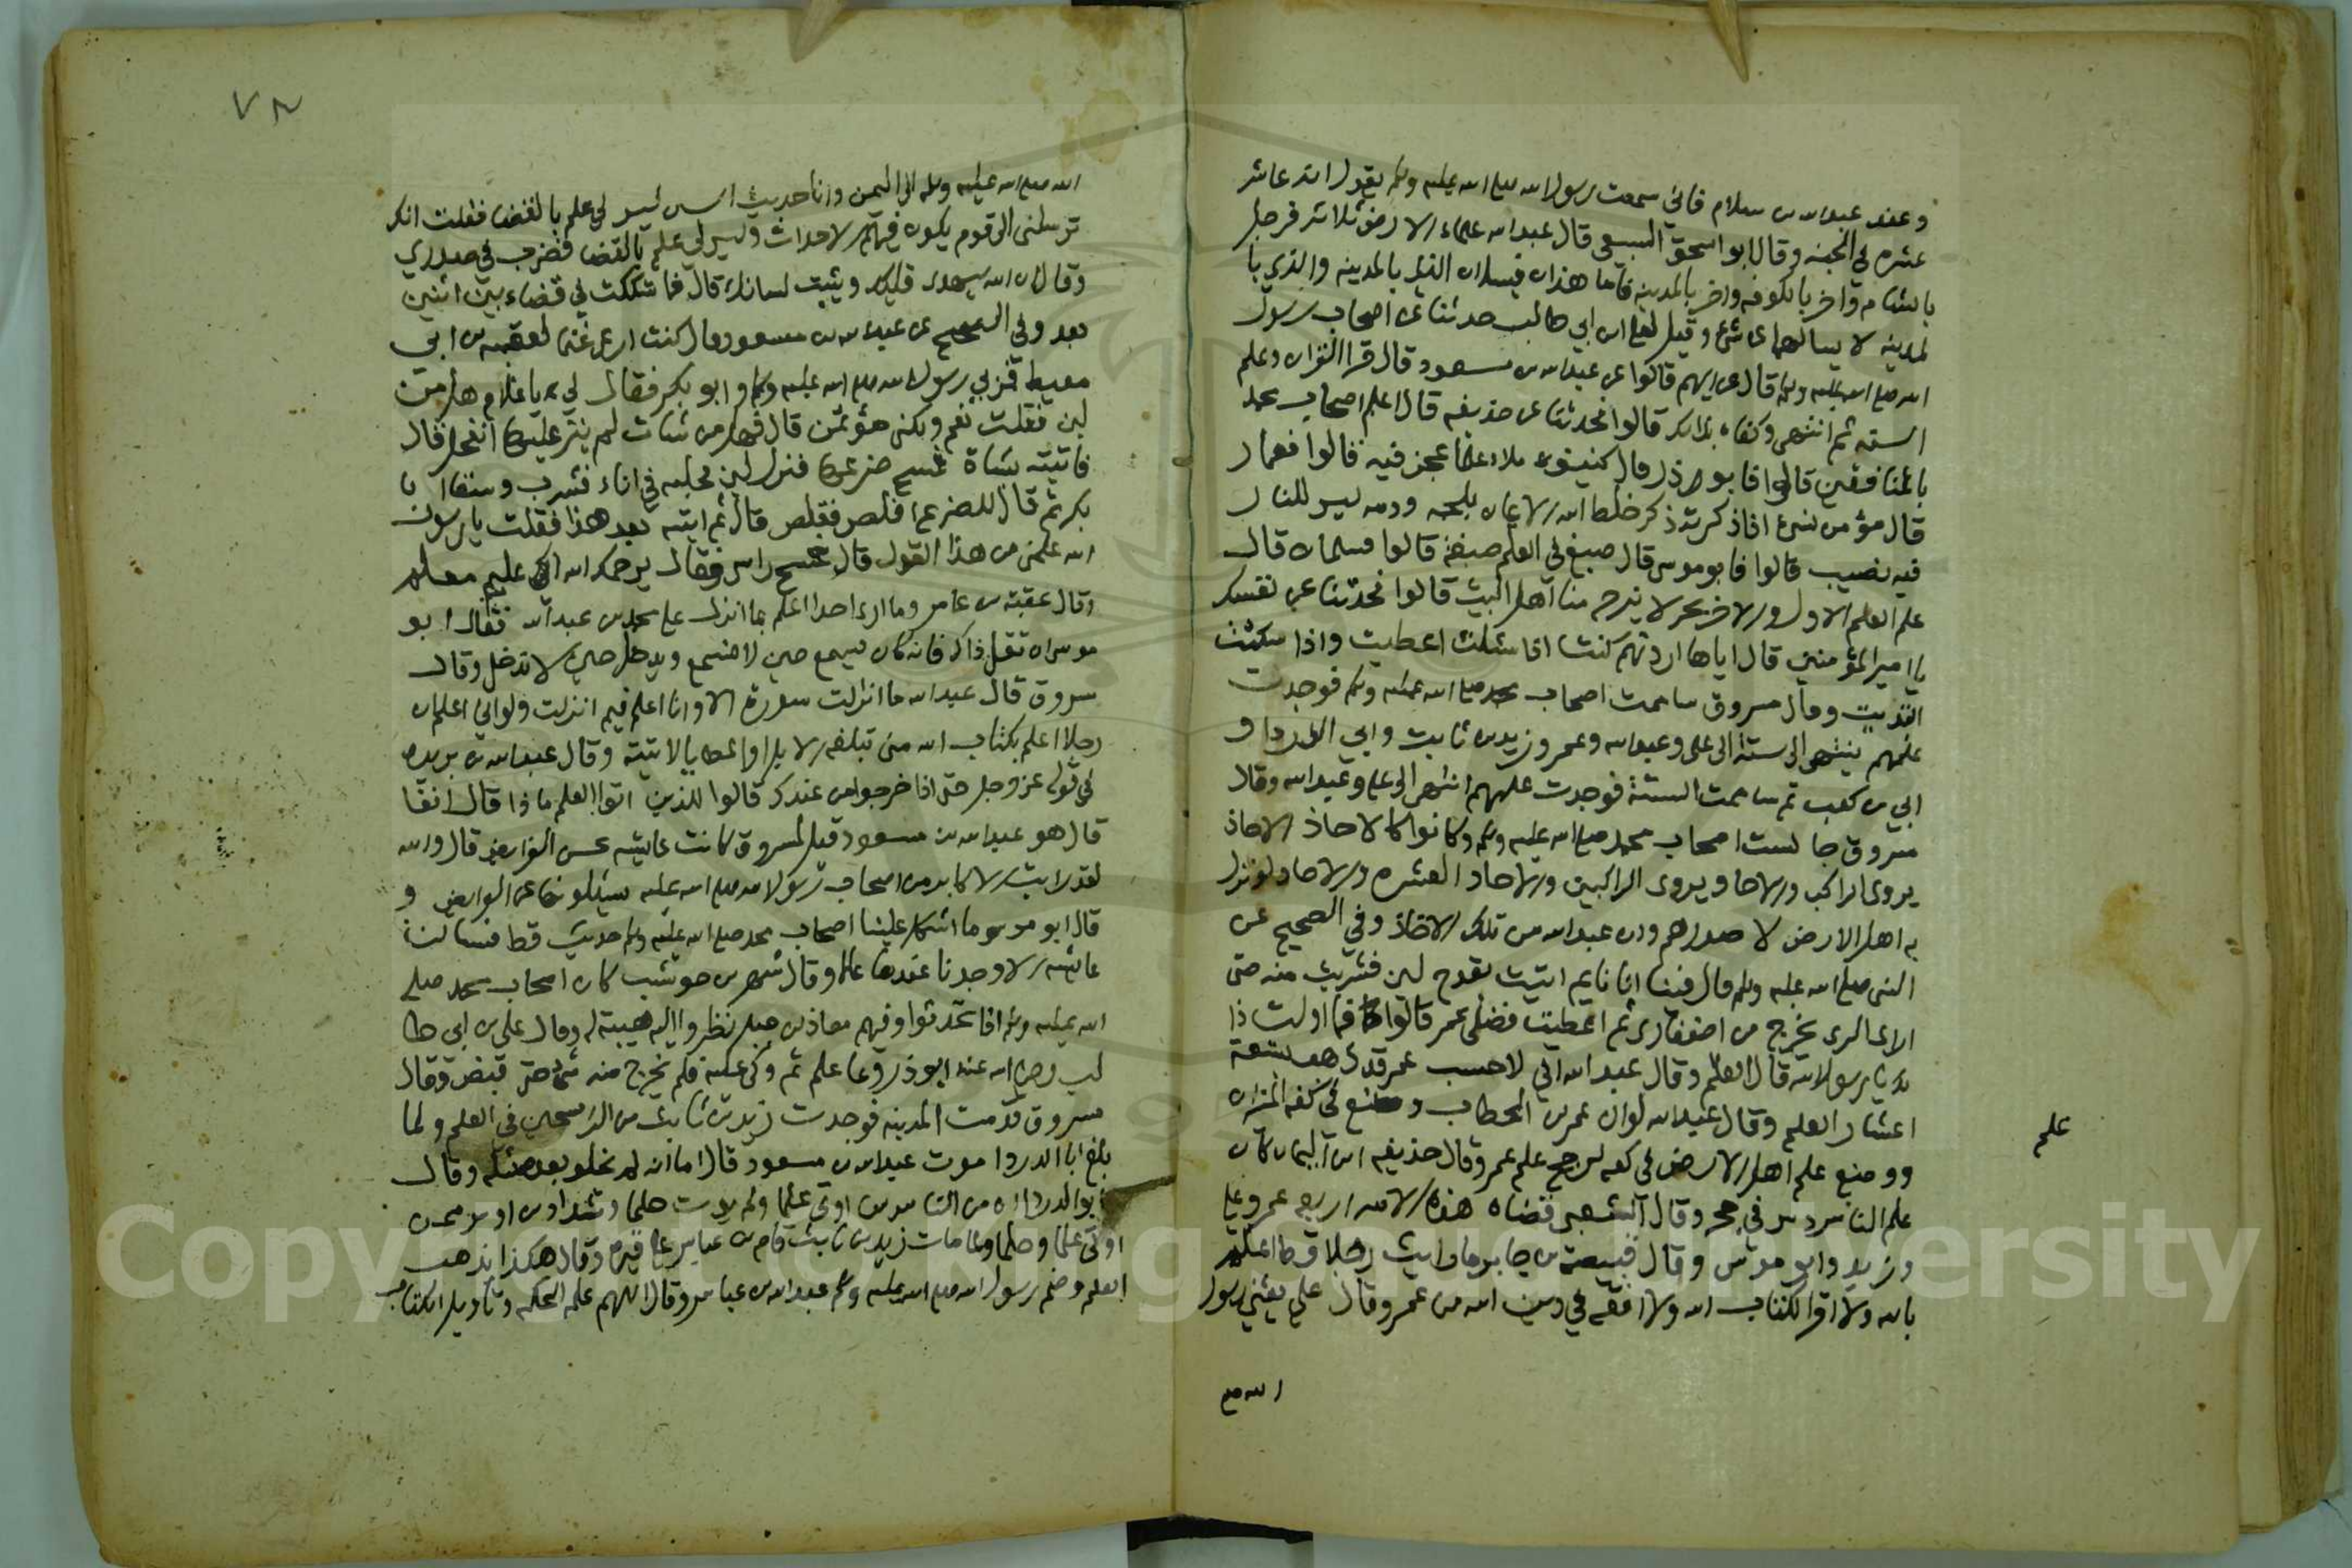 وعند عبد الله بن سلام فاني سمعت رسول الله صلى الله عليه وسلم يقول انه عاشر
عشرة في الجنة وقال ابو اسحق السبيعي قال عبد الله علماء الارض ثلاثة فرجل
بالشام واخر بالكوفة واخر بالمدينة فاما هذان فيسلان الذي بالمدينة والذي با
لمدينة لا يسالهما عن شئ وقيل لعلي ابن ابي طالب حدثنا عن اصحاب رسول
الله صلى الله عليه وسلم قال عن ايهم قالوا عن عبد الله بن مسعود قال قرا القران وعلم
السنة ثم انتهى وكفاه بذلك قالوا فحدثنا عن حذيفة قال اعلم اصحاب محمد
بالمنافقين قالوا فابو ذر قال كنيف ملاء علما عجز فيه قالوا فعمار
قال مؤمن نسي اذا ذكرته ذكر خلط الله الايمان بلحمه ودمه ليس للنار
فيه نصيب قالوا فابو موسى قال صبغ في العلم صبغة قالوا فسلمان قال
علم العلم الاول والاخر بحر لا ينزح منا اهل البيت قالوا فحدثنا عن نفسك
يا امير المؤمنين قال اياها اردتم كنت اذا سئلت اعطيت واذا سكت
ابتديت وقال مسروق شاممت اصحاب محمد صلى الله عليه وسلم فوجدت
علمهم ينتهي الى ستة الى علي وعبد الله وعمر وزيد بن ثابت وابي الدردا و
ابي بن كعب ثم شاممت الستة فوجدت علمهم انتهى الى علي وعبد الله وقال
مسروق جالست اصحاب محمد صلى الله عليه وسلم وكانوا كالاخاذ الاخاذ
يروي الراكب والاخاذ يروي الراكبين والاخاذ العشرة والاخاذ لو نزل
به اهل الارض لاصدرهم وان عبد الله من تلك الاخاذ وفي الصحيح عن
النبي صلى الله عليه وسلم قال فبينا انا نايم اتيت بقدح لبن فشربت منه حتى
الري يخرج من اضفاري ثم اعطيت فضلي عمر قالوا فما اولت ذا
لك يا رسول الله قال العلم وقال عبد الله اني لاحسب عمر قد ذهب بتسعة
اعشار العلم وقال عبد الله لو ان عمر بن الخطاب وضع في كفة الميزان
ووضع علم اهل الارض في كفه لرجح علم عمر وقال حذيفة ابن اليمان كان
علم
علم الناس درس في حجر وقال الشعبي قضاة هذه الامة اربعة عمر وعلي
وزيد وابو موسى وقال قبيصة بن جابر ما رايت رجلا قط اعلم
بالله ولا اقرا لكتاب الله ولا افقه في دين الله من عمر وقال علي بعثني رسول
الله ص
٧٨
الله صلى الله عليه وسلم الى اليمن وانا حديث السن ليس لي علم بالقضا فقلت انك
ترسلني الى قوم يكون فيهم الاحداث وليس لي علم بالقضا فضرب في صدري
وقال ان الله سيهدي قلبك ويثبت لسانك قال فما شككت في قضاء بين اثنين
بعد وفي الصحيح عن عبد الله بن مسعود قال كنت ارعى غنما لعقبة بن ابي
معيط فمر بي رسول الله صلى الله عليه وسلم وابو بكر فقال لي يا غلام هل من
لبن فقلت نعم ولكني مؤتمن قال فهل من شاة لم ينز عليها الفحل قال
فاتيته بشاة فمسح ضرعها فنزل لبن فحلبه في اناء فشرب وسقا ابا
بكر ثم قال للضرع اقلص فقلص قال ثم اتيته بعد هذا فقلت يا رسول
الله علمني من هذا القول قال فمسح راسي وقال يرحمك الله انك عليم معلم
وقال عقبة بن عامر وما ارى احدا اعلم بما انزل على محمد من عبد الله فقال ابو
موسى ان تقل ذاك فانه كان يسمع حين لا نسمع ويدخل حين لا ندخل وقال
مسروق قال عبد الله ما انزلت سورة الا وانا اعلم فيم انزلت ولو اني اعلم ان
رجلا اعلم بكتاب الله مني تبلغه الابل والمطايا لاتيته وقال عبد الله بن بريدة
في قوله عز وجل حتى اذا خرجوا من عندك قالوا للذين اتوا العلم ماذا قال انفا
قال هو عبد الله بن مسعود قيل لمسروق كانت عايشة تحسن الفرايض قال والله
لقد رايت الاكابر من اصحاب رسول الله صلى الله عليه يسئلونها عن الفرايض و
قال ابو موسى ما اشكل علينا اصحاب محمد صلى الله عليه وسلم حديث قط فسالنا
عائشة الا وجدنا عندها علما وقال شهر بن حوشب كان اصحاب محمد صلى
الله عليه وسلم اذا تحدثوا وفيهم معاذ بن جبل نظروا اليه هيبة له وقال علي بن ابي طا
لب رضي الله عنه ابو ذر وعا علم ثم وكي عليه فلم يخرج منه شئ حتى قبض وقال
مسروق قدمت المدينة فوجدت زيد بن ثابت من الراسخين في العلم ولما
بلغ ابا الدردا موت عبد الله بن مسعود قال اما انه لم يخلف بعده مثله وقال
ابو الدردا ان من الناس من اوتي علما ولم يؤت حلما وشداد بن اوس ممن
اوتي علما وحلما ولما مات زيد بن ثابت قام بن عباس على قبره وقال هكذا يذهب
العلم وضم رسول الله صلى الله عليه وسلم عبد الله بن عباس وقال اللهم علمه الحكمة وتاويل الكتاب
Copyright © King Saud University